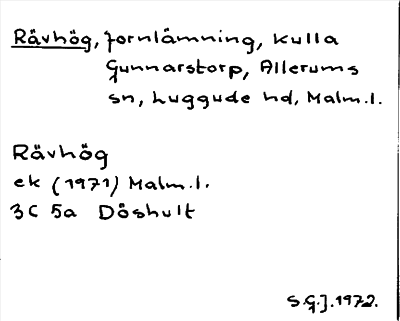 Rävhög, fornlämning, Kulla
Gunnarstorp, Allerums
sn, Luggude hd, Malm.l.
Rävhög
ek (1971) Malm.l.
3C 5a Döshult
S.G.J. 1972.